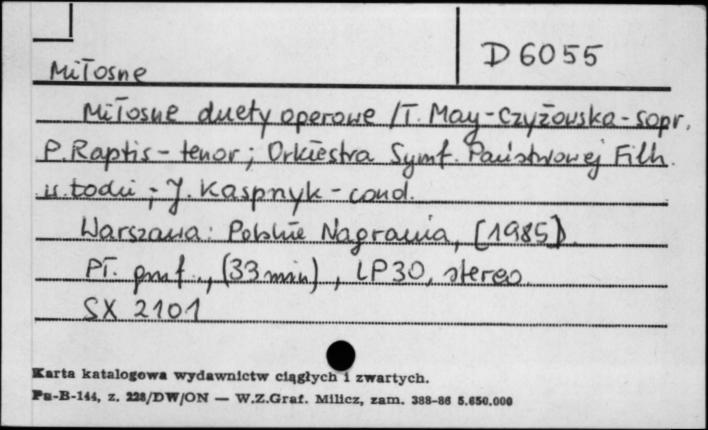 D 6055
Miłosne
Miłosne duety operowe / T. May-Czyżowska - sopr.
P. Raptis - tenor ; Orkiestra Symf. Państwowej Filh.
w Łodzi ; J. Kasprzyk - cond.
Warszawa : Polskie Nagrania, [1985].
Pł. gramof., (33 min), LP30, stereo
SX 2101
Karta katalogowa wydawnictw ciągłych i zwartych.
Pu-B-144, z. 228/DW/ON — W.Z.Graf. Milicz, zam. 388-86 5.650.000